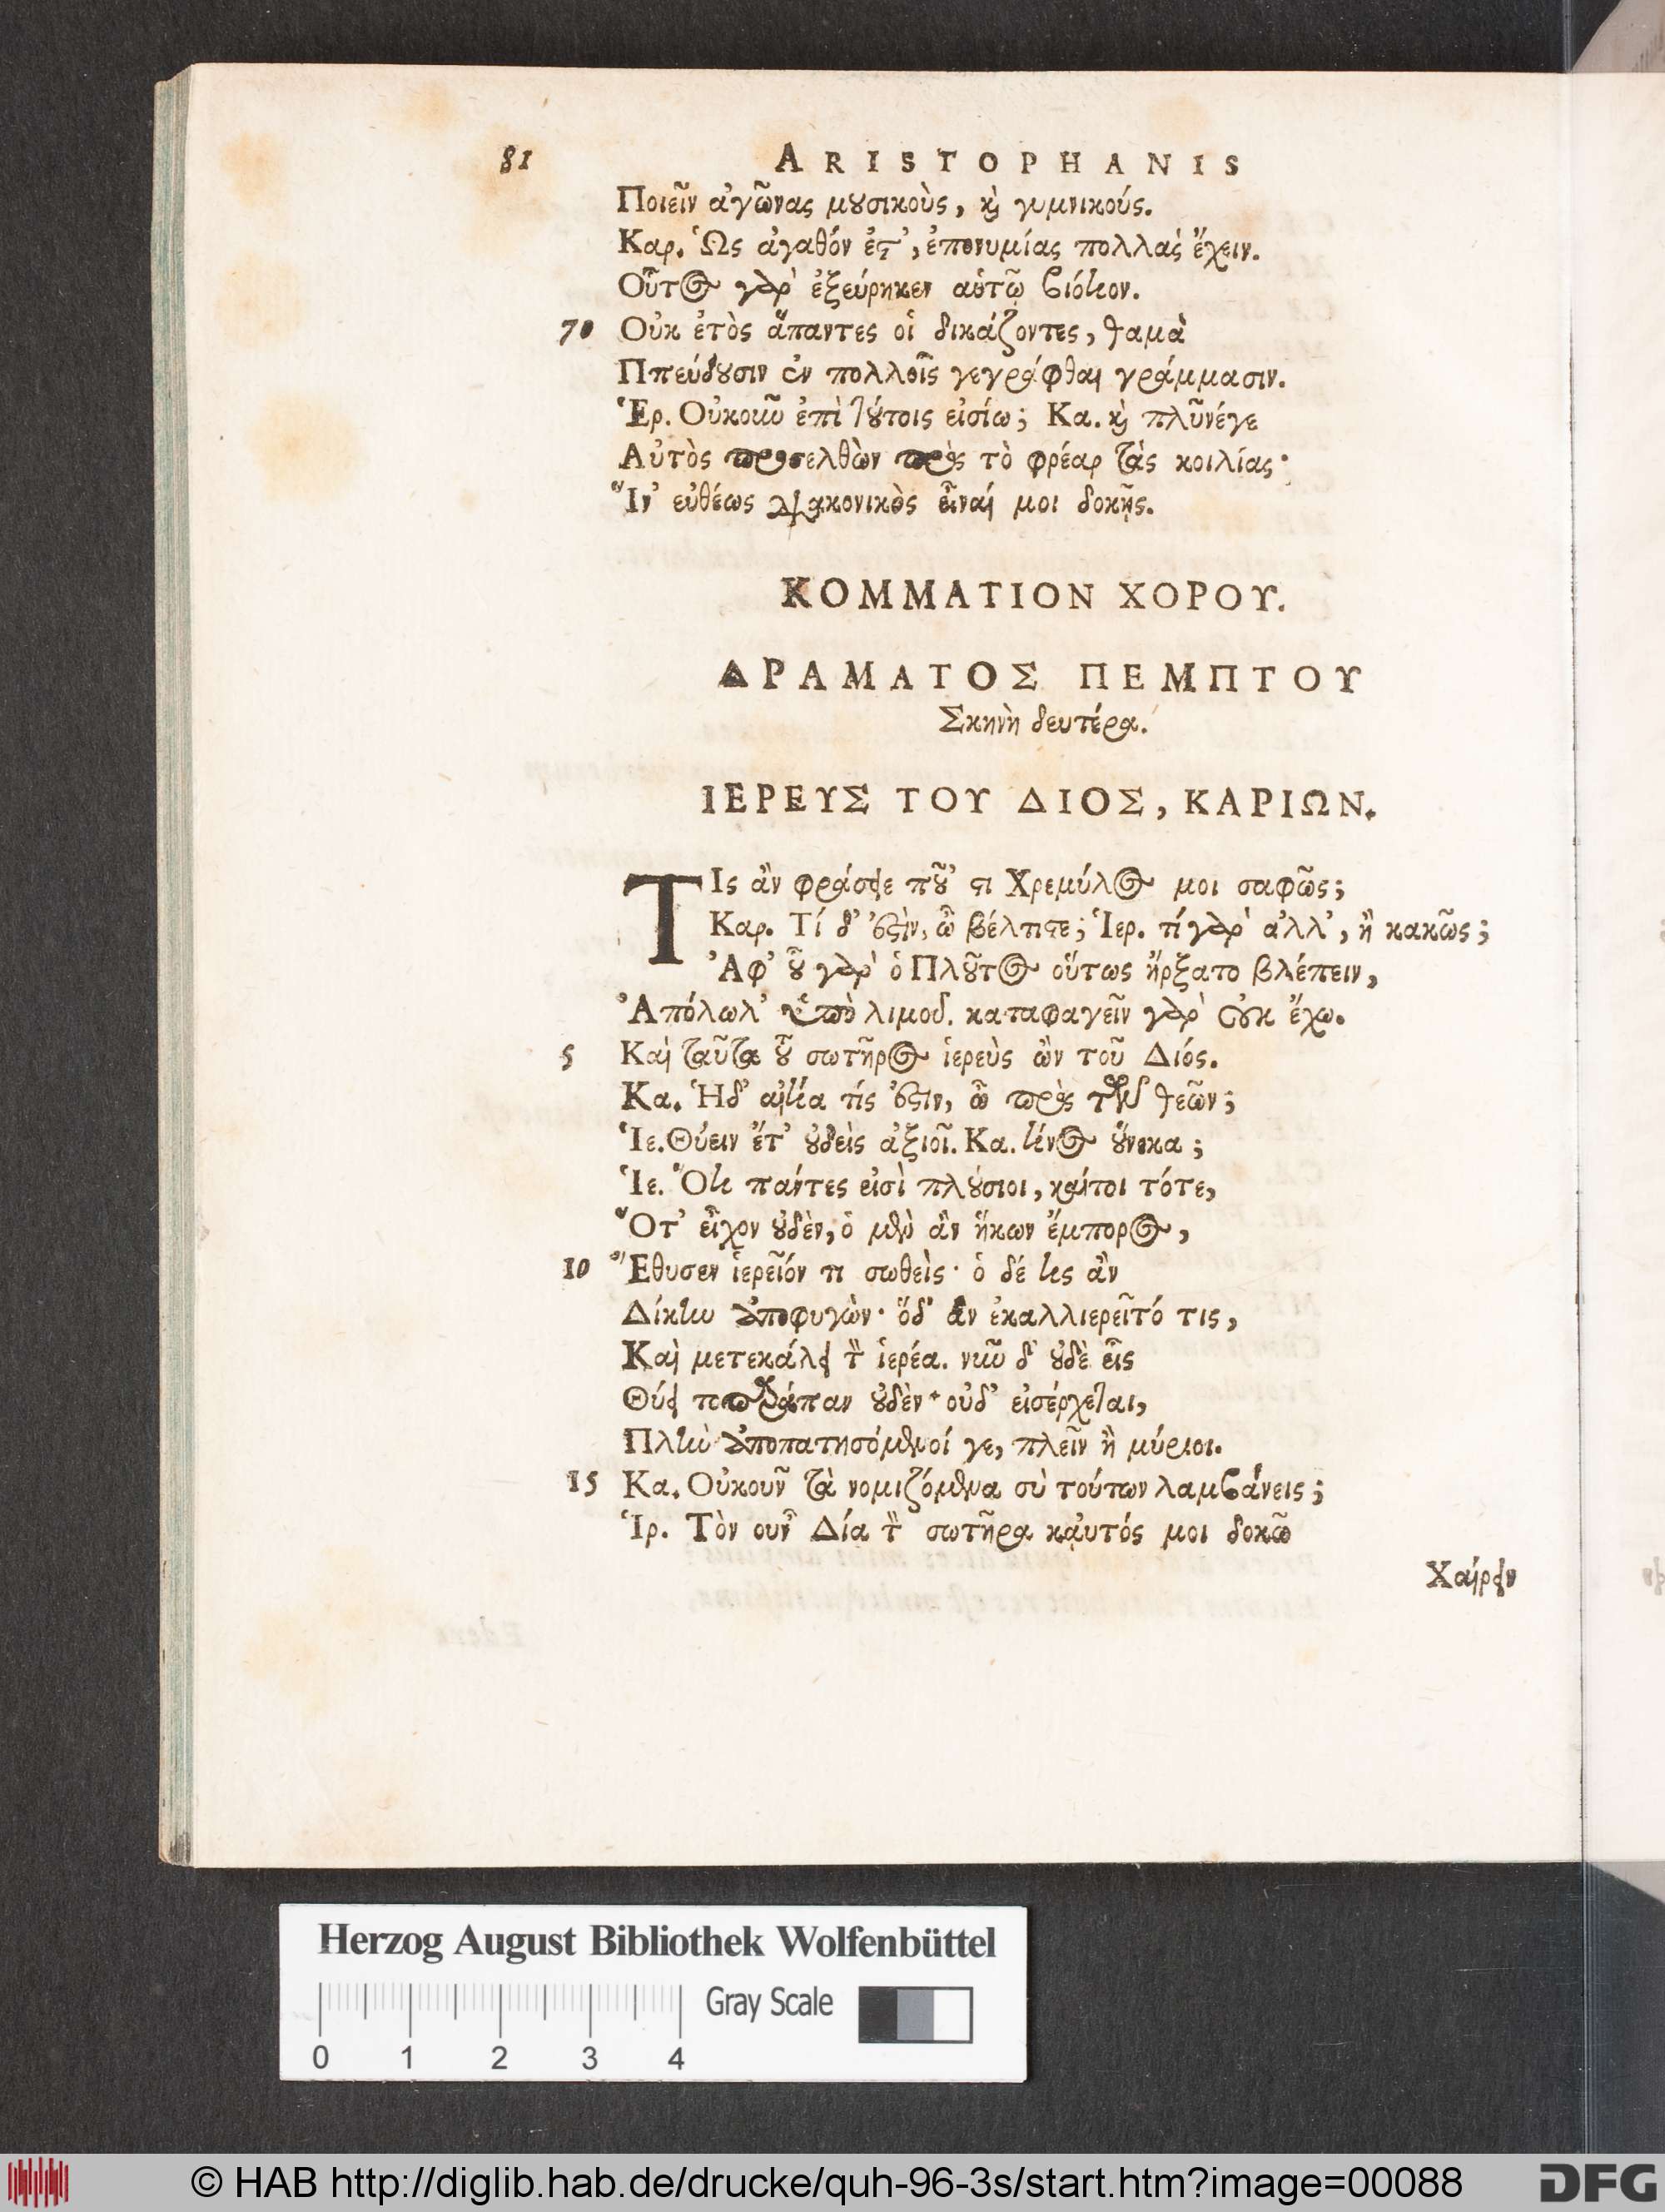 81 ARISTOPHANIS
Ποιεῖν ἀγῶνας μȣσικοὺς, ϗ γυμνικούς.
Καρ. Ὡς ἀγαθόν ἐς', ἐπονυμίας πολλας ἔχειν.
Οὗτος γὰρ ἐξεύρηκεν αὑτῷ βιότιον.
70 Οὐκ ἐτὸς ἅπαντες οἱ δικάζοντες, θαμὰ
Ππεύδȣσιν ἐν πολλοῖς γεγράφθαι γράμμασιν.
Ἑρ. Οὐκοιῶ ἐπὶ τȣ́τοις εἰσίω; Κα. ϗ πλῦνέγε
Αὐτὸς προσελθὼν πρὸς τὸ φρέαρ τὰς κοιλίας·
Ἵν' εὐθέως διακονικὸς εἶναί μοι δοκῇς.
ΚΟΜΜΑΤΙΟΝ ΧΟΡΟΥ.
ΔΡΑΜΑΤΟΣ ΠΕΜΠΤΟΥ
Σκηνὴ δευτέρα.
ΙΕΡΕΥΣ ΤΟΥ ΔΙΟΣ, ΚΑΡΙΩΝ.
ΤΙς ἂν φράσειε πȣ̃' ςι Χρεμύλος μοι σαφῶς;
Καρ. Τί δ' ἐςὶν, ὦ βέλτιςε; Ἱερ. τί γὰρ ἀλλ', ἢ κακῶς;
Ἀφ' ȣ̃ γὰρ ὁ Πλȣ̃τος οὕτως ἤρξατο βλέπειν,
Ἀπόλωλ' ὑπὸ λιμοῦ. καταφαγεῖν γὰρ οὐκ ἔχω.
5 Καὶ ταῦτα ȣ̃ σωτῆρος ἱερεὺς ὢν τοῦ Διός.
Κα. Ἡδ' αἰτία τίς ἐςιν, ὦ πρὸς τῶν θεῶν;
Ἱε. Θύειν ἔτ' ȣ̓δεὶς ἀξιοῖ. Κα. τίνος ȣ̔́νεκα;
Ἱε. Ὅτι πάντες εἰσὶ πλȣ́σιοι, καίτοι τότε,
Ὅτ' εἶχον ȣ̓δὲν, ὁ μὲν ἂν ἥκων ἔμπορος,
10 Ἔθυσεν ἱερεῖόν τι σωθεὶς· ὁ δέ τις ἂν
Δίκην ἀποφυγὼν· ὅδ' ἂν ἐκαλλιερεῖτό τις,
Καὶ μετεκάλει τ̃ ἱερέα. νιῶ δ' ȣ̓δὲ εἷς
Θύει τοπαράπαν ȣ̓δὲν· οὐδ' εἰσέρχεται,
Πλὴν ἀποπατησόμενοί γε, πλεῖν ἢ μύριοι.
15 Κα. Οὐκουν͂ τὰ νομιζόμενα σὺ τούτων λαμβάνεις;
Ἱρ. Τὸν ουν͂ Δία τ̃ σωτῆρα καὐτός μοι δοκῶ
Χαίρειν
Herzog August Bibliothek Wolfenbüttel
Gray Scale
0 1 2 3 4
© HAB http://diglib.hab.de/drucke/quh-96-3s/start.htm?image=00088 DFG